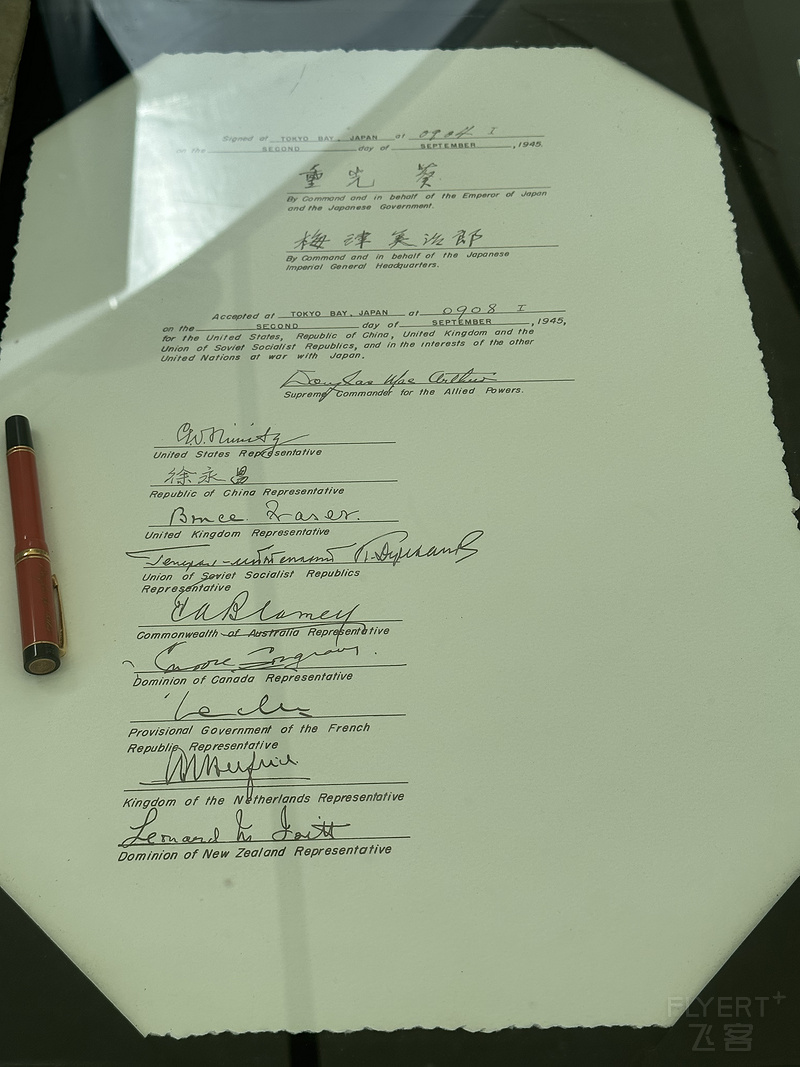 Signed at TOKYO BAY, JAPAN at 0904 I
on the SECOND day of SEPTEMBER, 1945.
重光葵
By Command and in behalf of the Emperor of Japan
and the Japanese Government.
梅津美治郎
By Command and in behalf of the Japanese
Imperial General Headquarters.
Accepted at TOKYO BAY, JAPAN at 0908 I
on the SECOND day of SEPTEMBER, 1945,
for the United States, Republic of China, United Kingdom and the
Union of Soviet Socialist Republics, and in the interests of the other
United Nations at war with Japan.
Douglas MacArthur
Supreme Commander for the Allied Powers.
C.W. Nimitz
United States Representative
徐永昌
Republic of China Representative
Bruce Fraser.
United Kingdom Representative
Union of Soviet Socialist Republics
Representative
T A Blamey
Commonwealth of Australia Representative
Dominion of Canada Representative
Provisional Government of the French
Republic Representative
Kingdom of the Netherlands Representative
Leonard M Isitt
Dominion of New Zealand Representative
FLYERT+
飞客